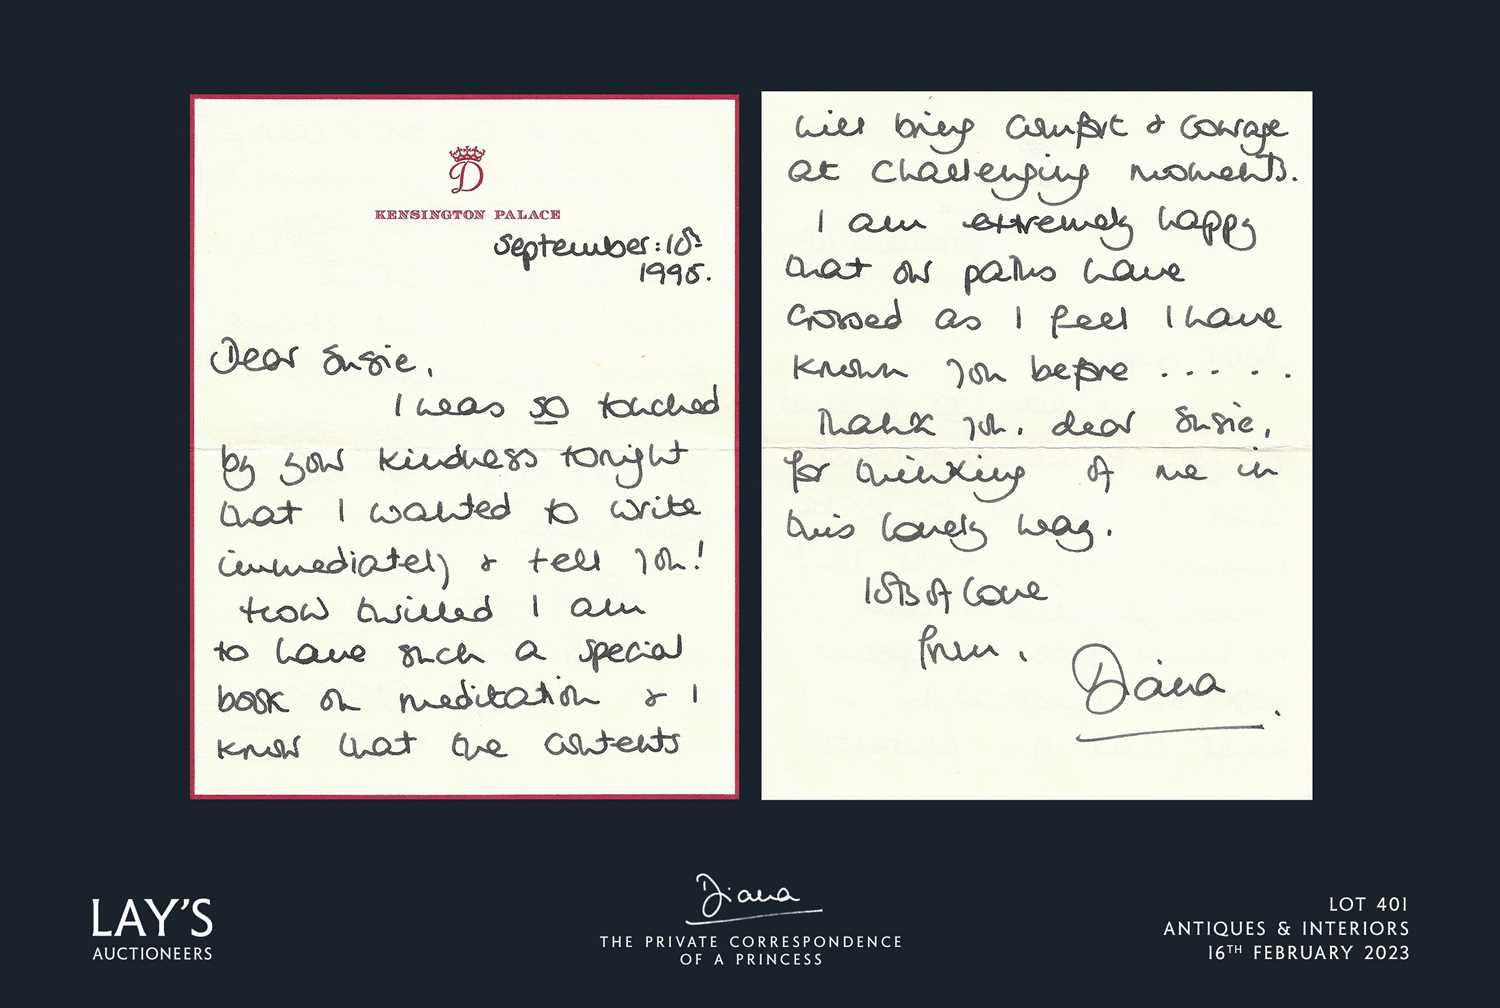 D
KENSINGTON PALACE
September: 10th
1995.
Dear Susie,
I was so touched
by your kindness tonight
that I wanted to write
immediately & tell you!
How thrilled I am
to have such a special
book on meditation & I
know that the contents
will bring comfort & courage
at challenging moments.
I am extremely happy
that our paths have
crossed as I feel I have
known you before .....
Thank you, dear Susie,
for thinking of me in
this lovely way.
lots of love
from,
Diana.
LAY'S
AUCTIONEERS
Diana
THE PRIVATE CORRESPONDENCE
OF A PRINCESS
LOT 401
ANTIQUES & INTERIORS
16TH FEBRUARY 2023